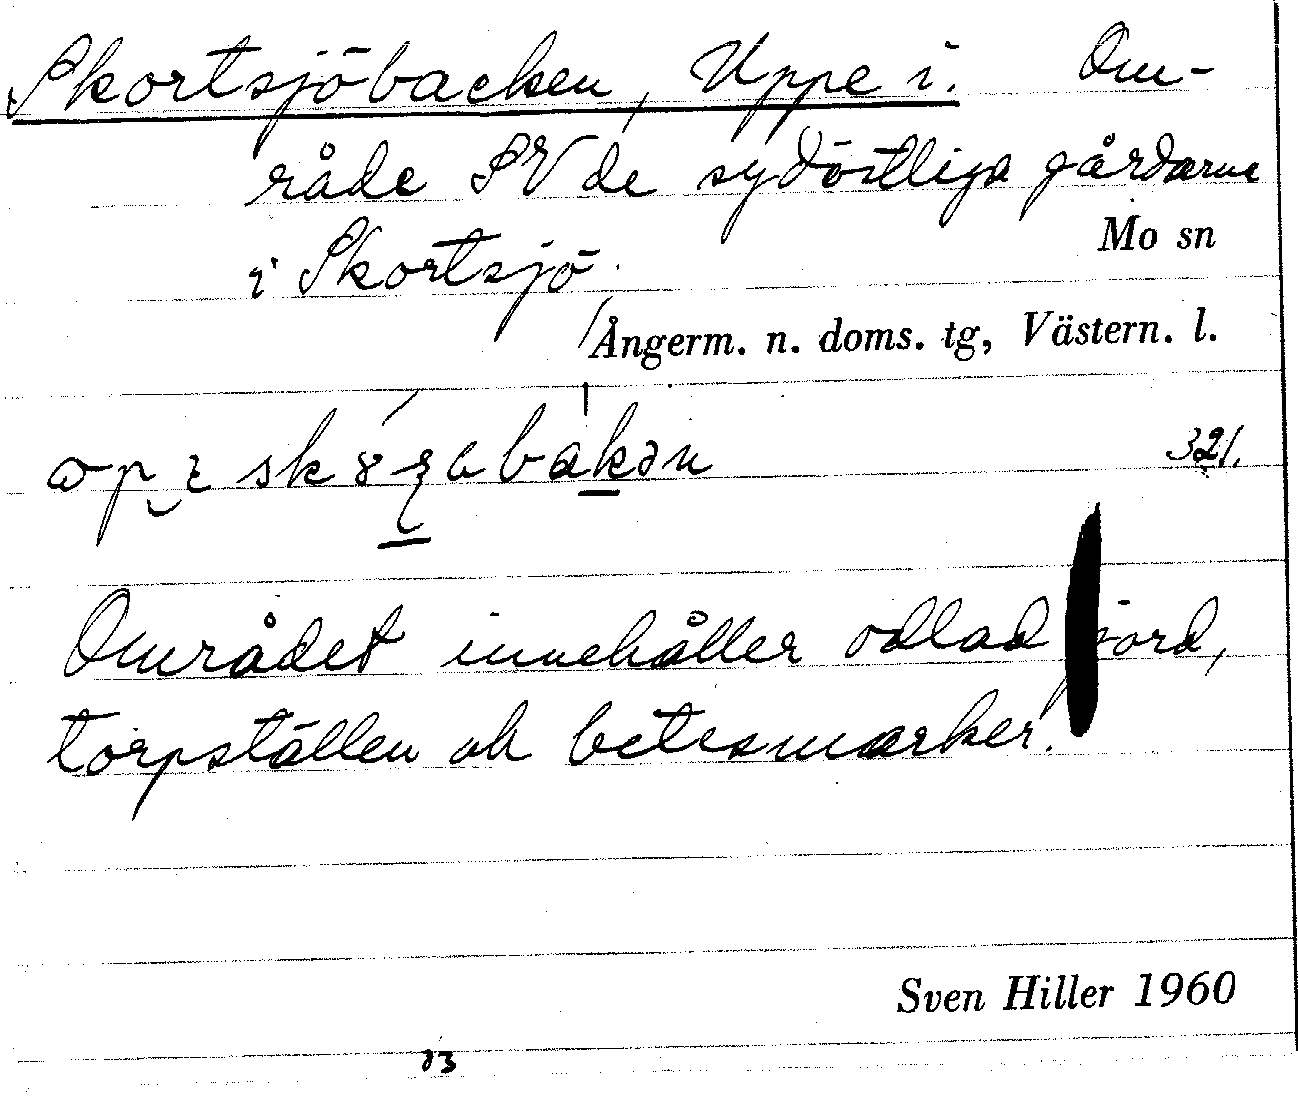 Skortsjöbacken, Uppe i. Om-
råde SV de sydöstliga gårdarne
i Skortsjö.
Mo sn
Ångerm. n. doms. tg, Västern. l.
321.
Området innehåller odlad jord,
torpställen ok betesmarker.
Sven Hiller 1960
83